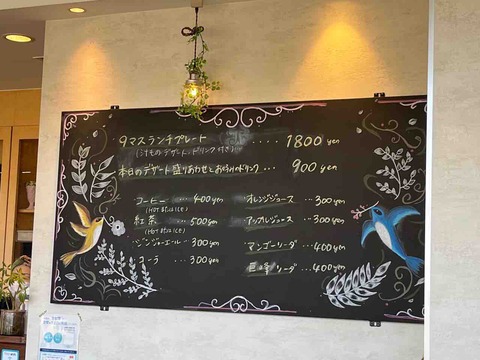 9マスランチプレート ・・・・ 1800 yen
本日のデザート盛りあわせとお好みのドリンク ・・・ 900 yen
コーヒー ・・・ 400 yen
(HOT またはICE)
紅茶 ・・・ 500 yen
(HOT またはICE)
ジンジャーエール ・・ 300 yen
コーラ ・・ 300 yen
オレンジジュース ・・・ 300 yen
アップルジュース ・・・ 300 yen
マンゴーソーダ ・・ 400 yen
巨峰ソーダ ・・ 400 yen